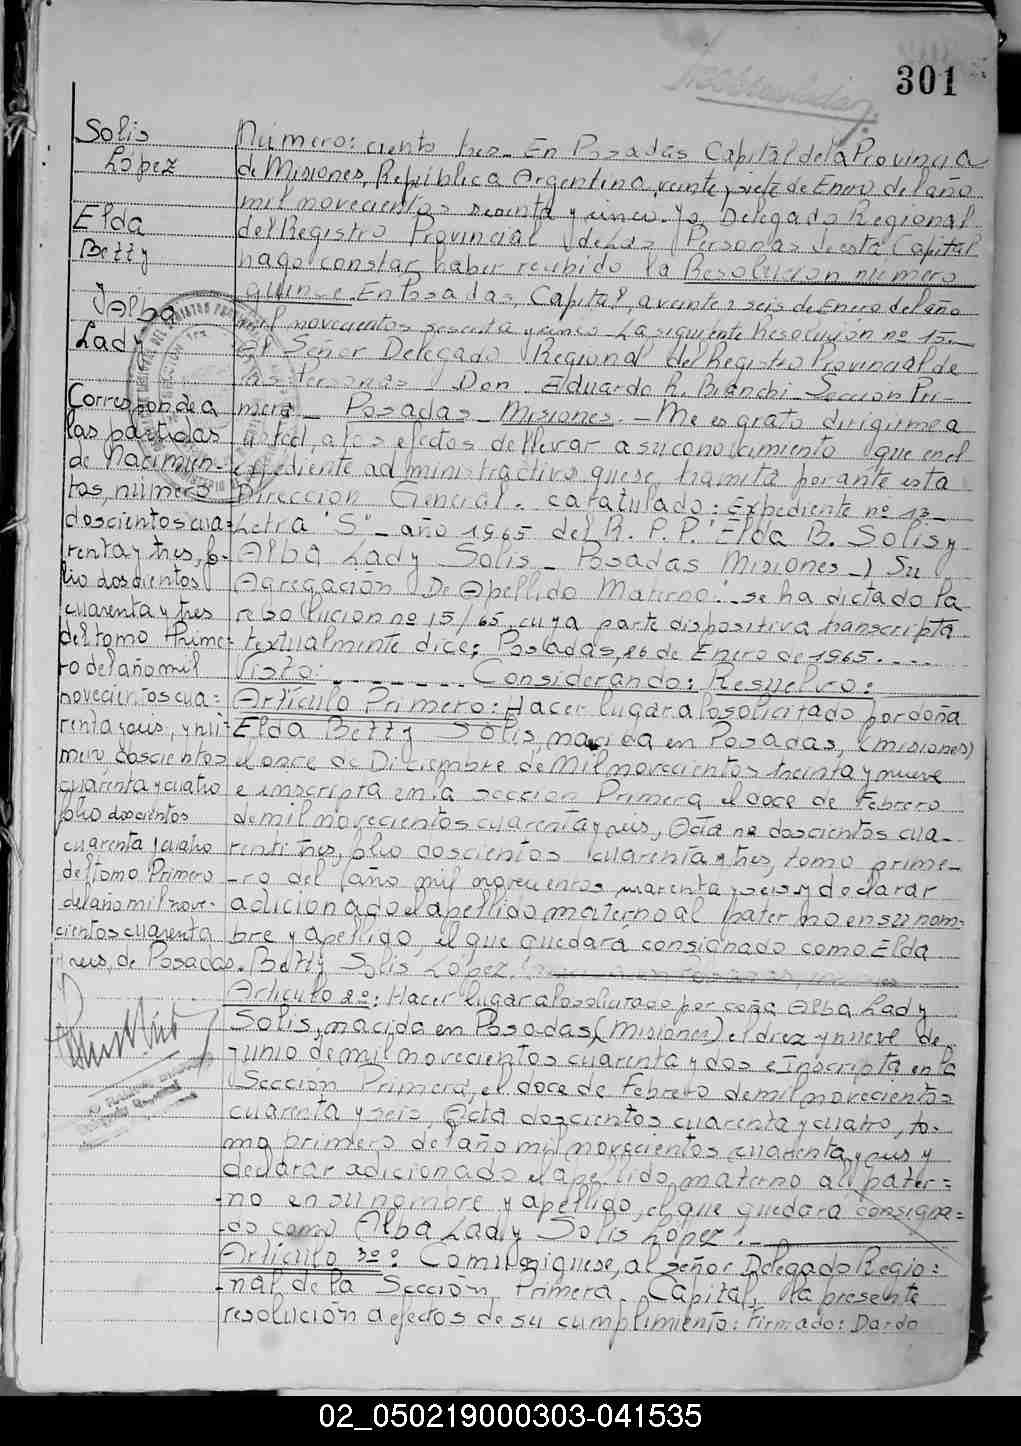 301
Solis
López
Elda
Betty
y Alba
Lady
Corresponde a
las partidas
de Nacimien-
tos, número
doscientos cua=
renta y tres, fo-
lio doscientos
cuarenta y tres
del tomo Prime-
ro del año mil
novecientos cua=
renta y seis, y nú-
mero doscientos
cuarenta y cuatro
folio doscientos
cuarenta y cuatro
del tomo Primero
del año mil nove-
cientos cuarenta
y seis, de Posadas.
Número: ciento tres. En Posadas Capital de la Provincia
de Misiones, República Argentina, veinte y siete de Enero del año
mil novecientos sesenta y cinco. Yo, Delegado Regional
del Registro Provincial de las Personas de esta Capital
hago constar haber recibido la Resolución número
quince. En Posadas, Capital, a veinte y seis de Enero del año
mil novecientos sesenta y cinco. La siguiente Resolución nº 15.
Al Señor Delegado Regional del Registro Provincial de
las Personas Don Eduardo R. Bianchi Sección Pri-
mera - Posadas - Misiones. - Me es grato dirigirme a
usted, a los efectos de llevar a su conocimiento que en el
expediente administractivo que se tramita por ante esta
Dirección General. caratulado: Expediente nº 13-
Letra "S" - año 1965 del R. P. P. "Elda B. Solis y
Alba Lady Solis - Posadas Misiones -) Su
Agregación De Apellido Materno". se ha dictado la
resolución nº 15/65, cuya parte dispositiva transcripta
textualmente dice; Posadas, 26 de Enero de 1965. ----
Visto: ------- Considerando: Resuelvo:
Artículo Primero: Hacer lugar a lo solicitado por doña
Elda Betty Solis, nacida en Posadas, (Misiones)
el once de Diciembre de Mil novecientos treinta y nueve
e inscripta en la sección Primera el doce de Febrero
de mil novecientos cuarenta y seis, Acta nº doscientos cua-
renti tres, folio doscientos cuarenta y tres, tomo prime-
-ro del año mil novecientos cuarenta y seis y declarar
adicionado el apellido materno al paterno en su nom-
bre y apellido, el que quedará consignado como Elda
Betty Solis López.
Artículo 2º: Hacer lugar a lo solicitado por doña Alba Lady
Solis, nacida en Posadas (Misiones) el diez y nueve de
Junio de mil novecientos cuarenta y dos e inscripta en la
Sección Primera, el doce de Febrero de mil novecientos
cuarenta y seis, Acta doscientos cuarenta y cuatro, to-
mo primero del año mil novecientos cuarenta y seis y
declarar adicionado el apellido materno al pater=
-no en su nombre y apellido, el que quedará consigna=
-do como Alba Lady Solis López".-
Artículo 3º: Comuníquese, al señor Delegado Regio=
-nal de la Sección Primera. Capital, la presente
resolución a efectos de su cumplimiento: Firmado: Dardo
02_050219000303-041535